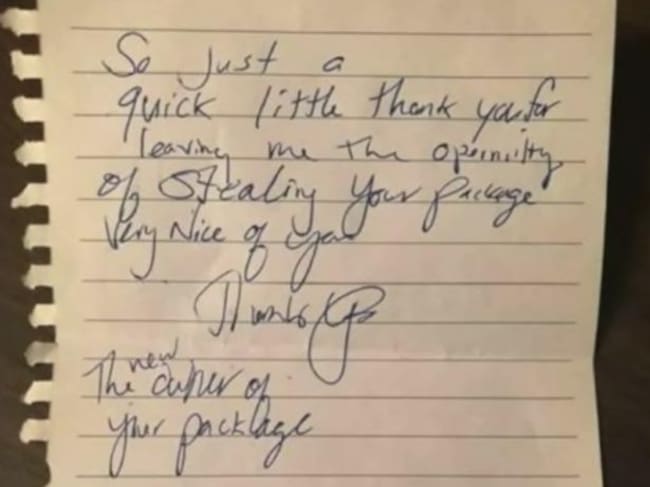 So Just a
quick little thank you for
leaving me the opernuilty
of Stealing Your package
Very Nice of you
Thanks
The new owner of
your package